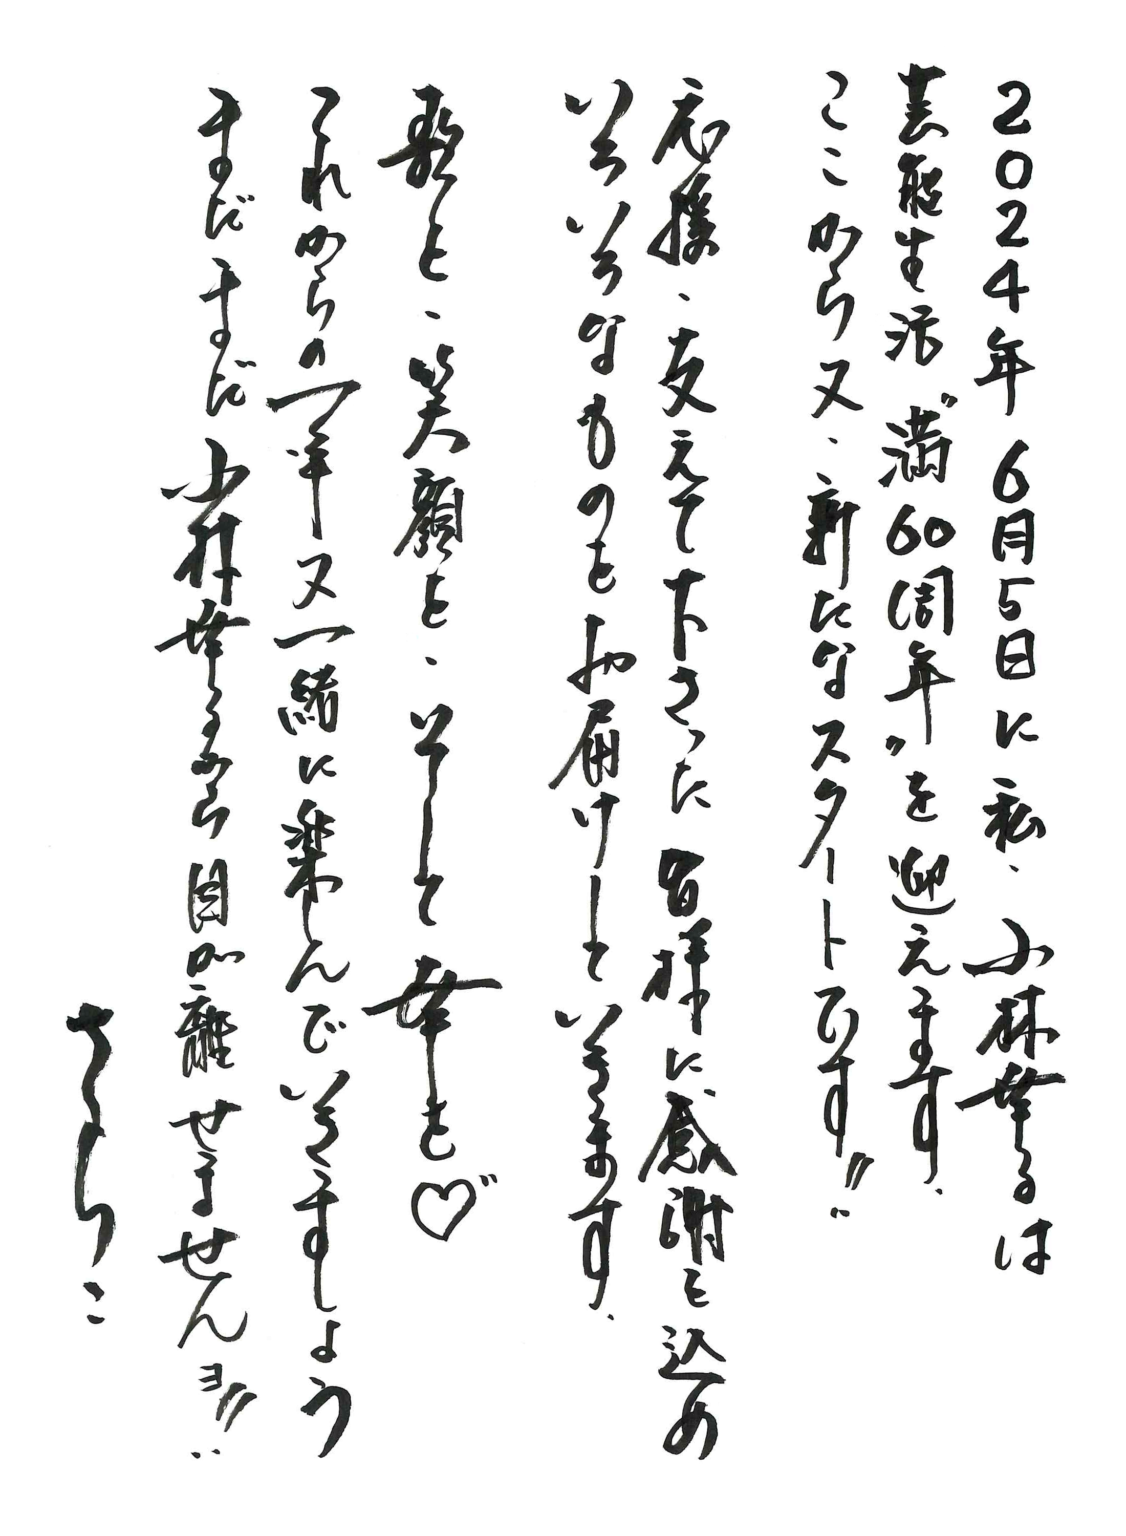 2024年6月5日に私、小林幸子は
芸能生活”満60周年”を迎えます。
ここから又、新たなスタートです!!
応援、支えて下さった皆様に感謝を込め
いろいろなものをお届けしていきます。
歌と、笑顔を、そして幸も♡"
これからの一年又一緒に楽しんでいきましょう
まだまだ小林幸子から目が離せませんヨ!!
さちこ